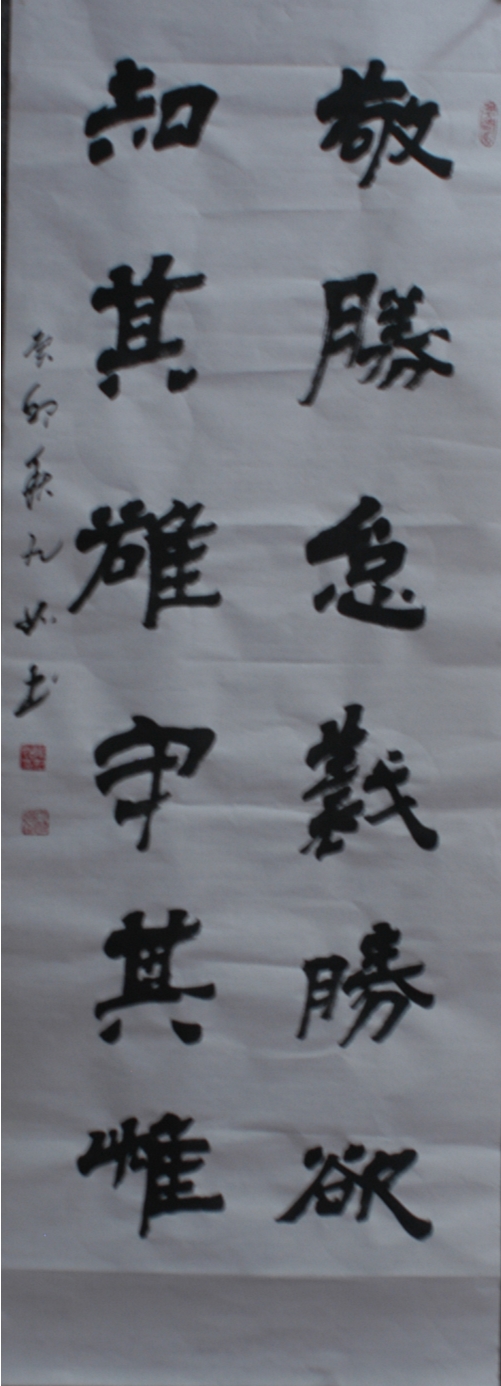 敬勝怠義勝欲
知其雄守其雌
癸卯九如书